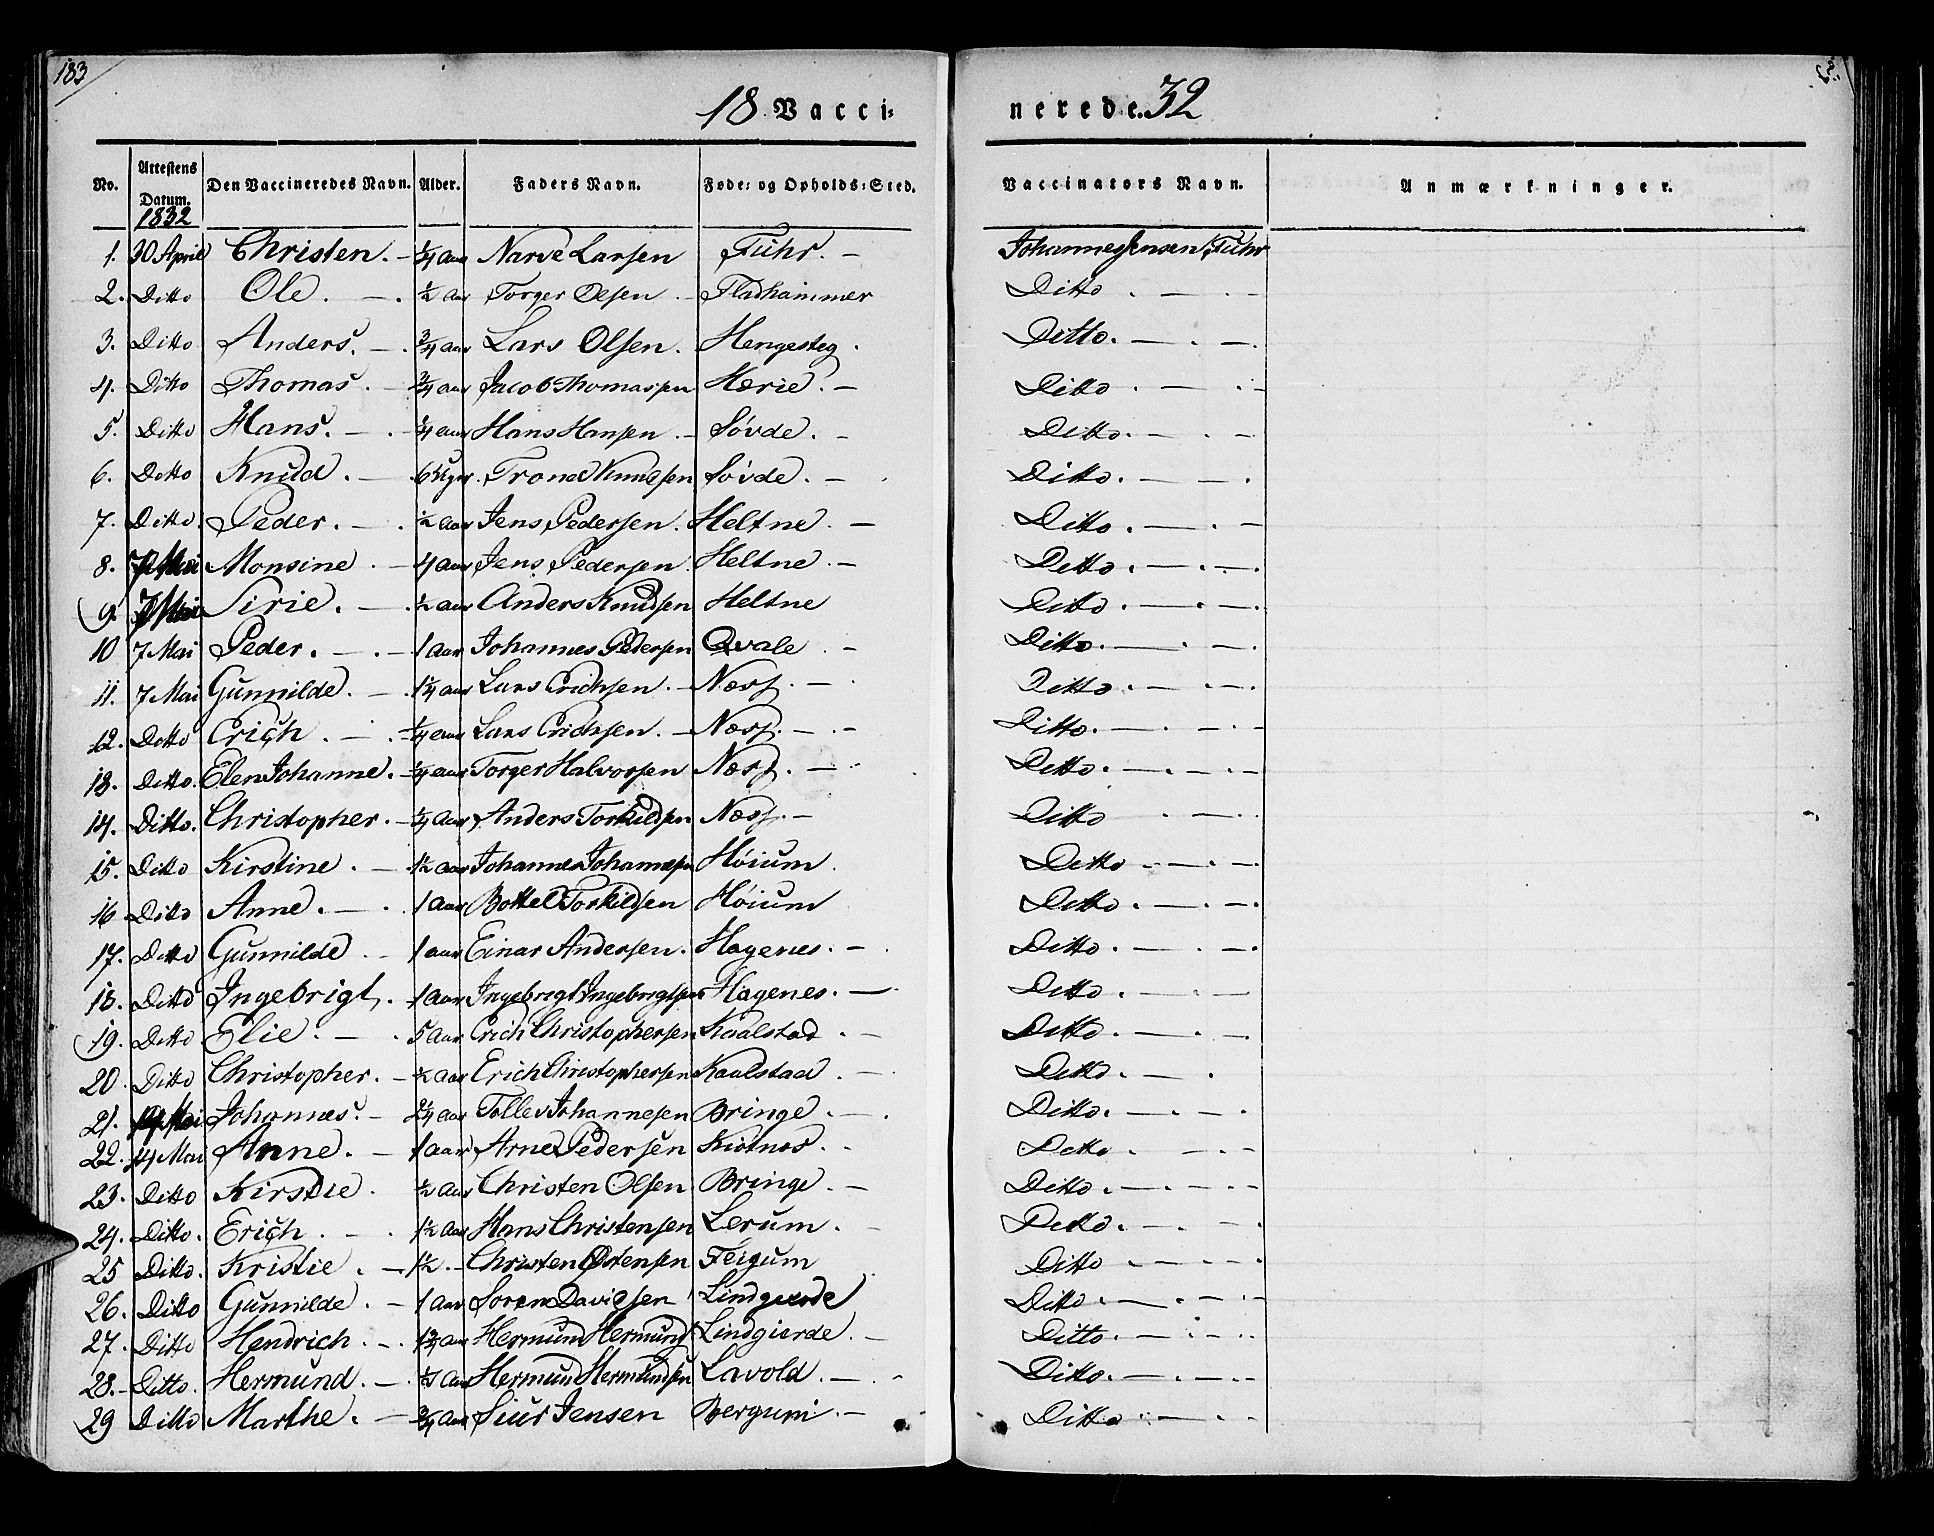 183
18 Vacci=
nerede. 32
No. Attestens Datum. Den Vaccineredes Navn. Alder. Faders Navn. Føde= og Opholds=Sted. Vaccinators Navn. Anmærkninger.
1832
1. 30 April Christen. - 1/4 aar Narve Larsen Fuhr. - Johannes Jensen Fuhr
2. Ditto Ole. - . 1/2 aar Torger Olsen - Fladhammer Ditto . - . -
3. Ditto Anders. - . 3/4 aar Lars Olsen. Hengesteg. Ditto. - . -
4. Ditto Thomas. - 3/4 aar Jacob Thomassen Hærie. - Ditto . - . -
5. Ditto Hans. - . 1/4 aar Hans Hansen. - Søvde. - Ditto. - . -
6. Ditto Knud. - 6 Uger. Trond Knudsen Søvde. - Ditto. - - .
7. Ditto. Peder. - . 1/2 aar Jens Pedersen. Heltne. - Ditto . - . -
8. 7 Mai Monsine . - 4 aar Jens Pedersen. Heltne. - Ditto. - . -
9. 7 Mai Sirie. - . 1/2 aar Anders Knudsen Heltne Ditto . - . -
10 7 Mai Peder. - . - 1 aar Johannes Pedersen Qvale . - Ditto. - . -
11. 7 Mai Gunnilde. - . 1 1/4 aar Lars Erichsen. - Næss. - . Ditto. - . -
12. Ditto Erich . - . - 1/4 aar Lars Erichsen. - Næss. - . - Ditto. - . -
13. Ditto. Elen Johanne. - 1/4 aar Torger Halvorsen Næss. - . Ditto. - . - . -
14. Ditto. Christopher. - 1/4 aar Anders Torkildsen Næss. - Ditto . - . -
15. Ditto Kirstine . - 1 1/2 aar Johannes Johannesen Høium. Ditto . - . -
16 Ditto Anne. - . 1 aar Bottel Torkildsen Høium Ditto . - . -
17. Ditto Gunnilde . - 1 aar Einar Andersen. Hagenes. - . Ditto. - . -
18. Ditto Ingebrigt. . 1 aar Ingebrigt Ingebrigtsen Hagenes. - . Ditto . - . -
19. Ditto Elie. - . 5 aar Erich Christophersen Kaalstad. - Ditto . - . -
20. Ditto Christopher. - 1/2 aar Erich Christophersen Kaalstad. - Ditto. - .
21. Johannes. - 2 1/4 aar Tollev Johannesen Bringe. - . Ditto. - . -
22. 14 Mai Anne. - 1 aar Arne Pedersen Kiotnes. - Ditto . - . -
23. Ditto Kirstie. 1/2 aar Christen Olsen. Bringe. - Ditto. - . - . -
24. Ditto. Erich . - . 1 1/2 aar Hans Christensen Lerum. - Ditto. - . -
25 Ditto. Kristie. - 1 1/2 . - Christen Østensen Feigum Ditto . - . - . -
26. Ditto Gunnilde. - 1 aar Soren Davidsen Lindgierde Ditto . - . - . -
27. Ditto Hendrich. - . 1 3/4 aar Hermund Hermund Lindgierde. - Ditto. - . - . .
28. Ditto. Hermund. - . aar Hermund Hermundsen Lavold. - . - Ditto. - . - . -
29 Ditto Marthe. - 3/4 aar Siur Jensen Bergum. - Ditto . - . -